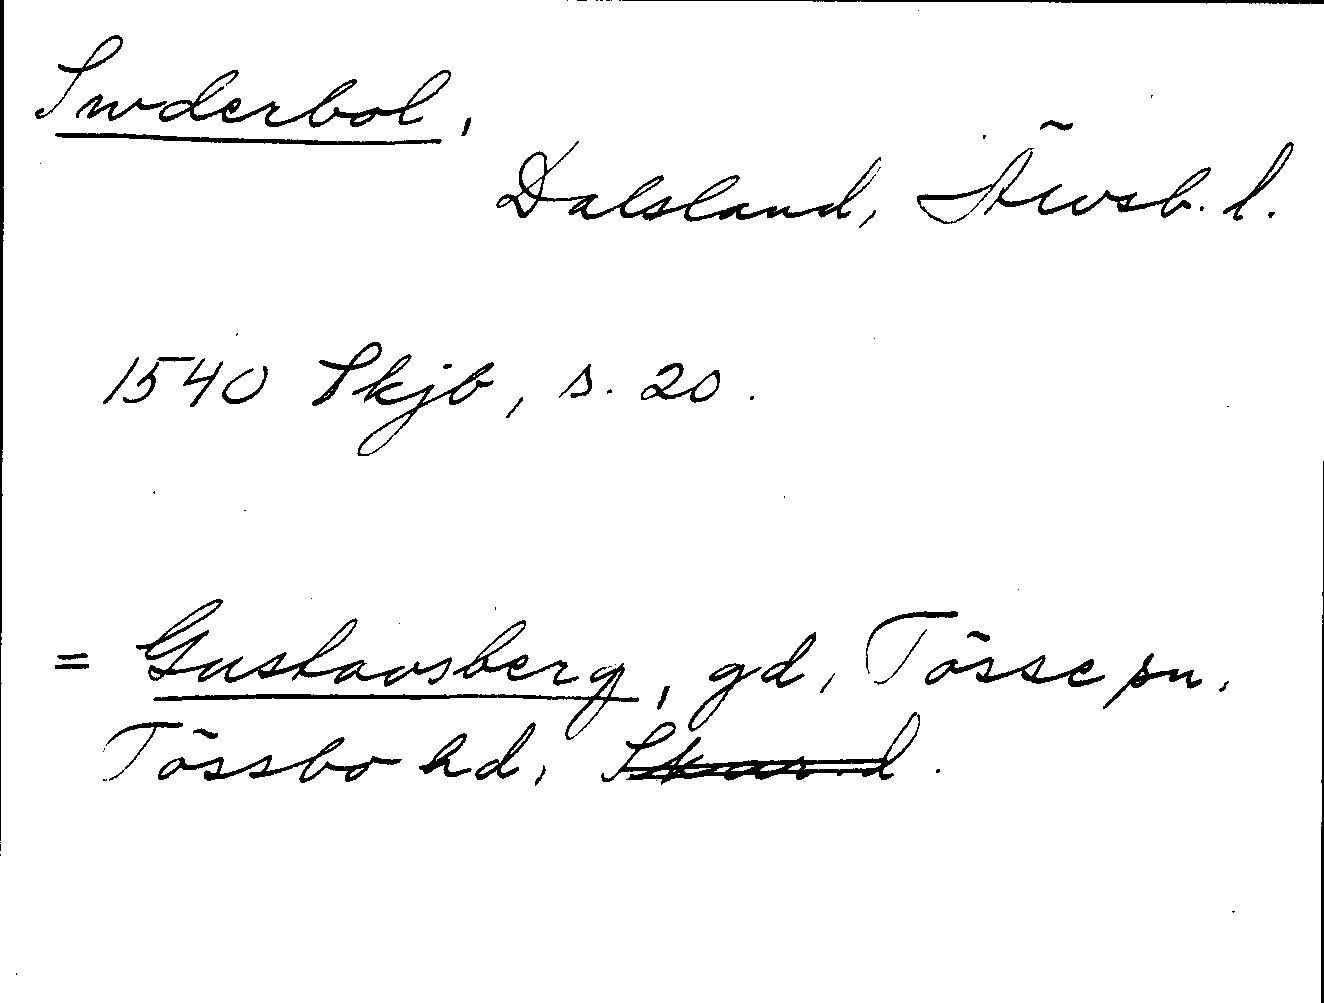 Swderbol,
Dalsland, Älvsb. l.
1540 Skjb, s. 20.
= Gustavsberg, gd, Tösse sn,
Tössbo hd, Skar. l.